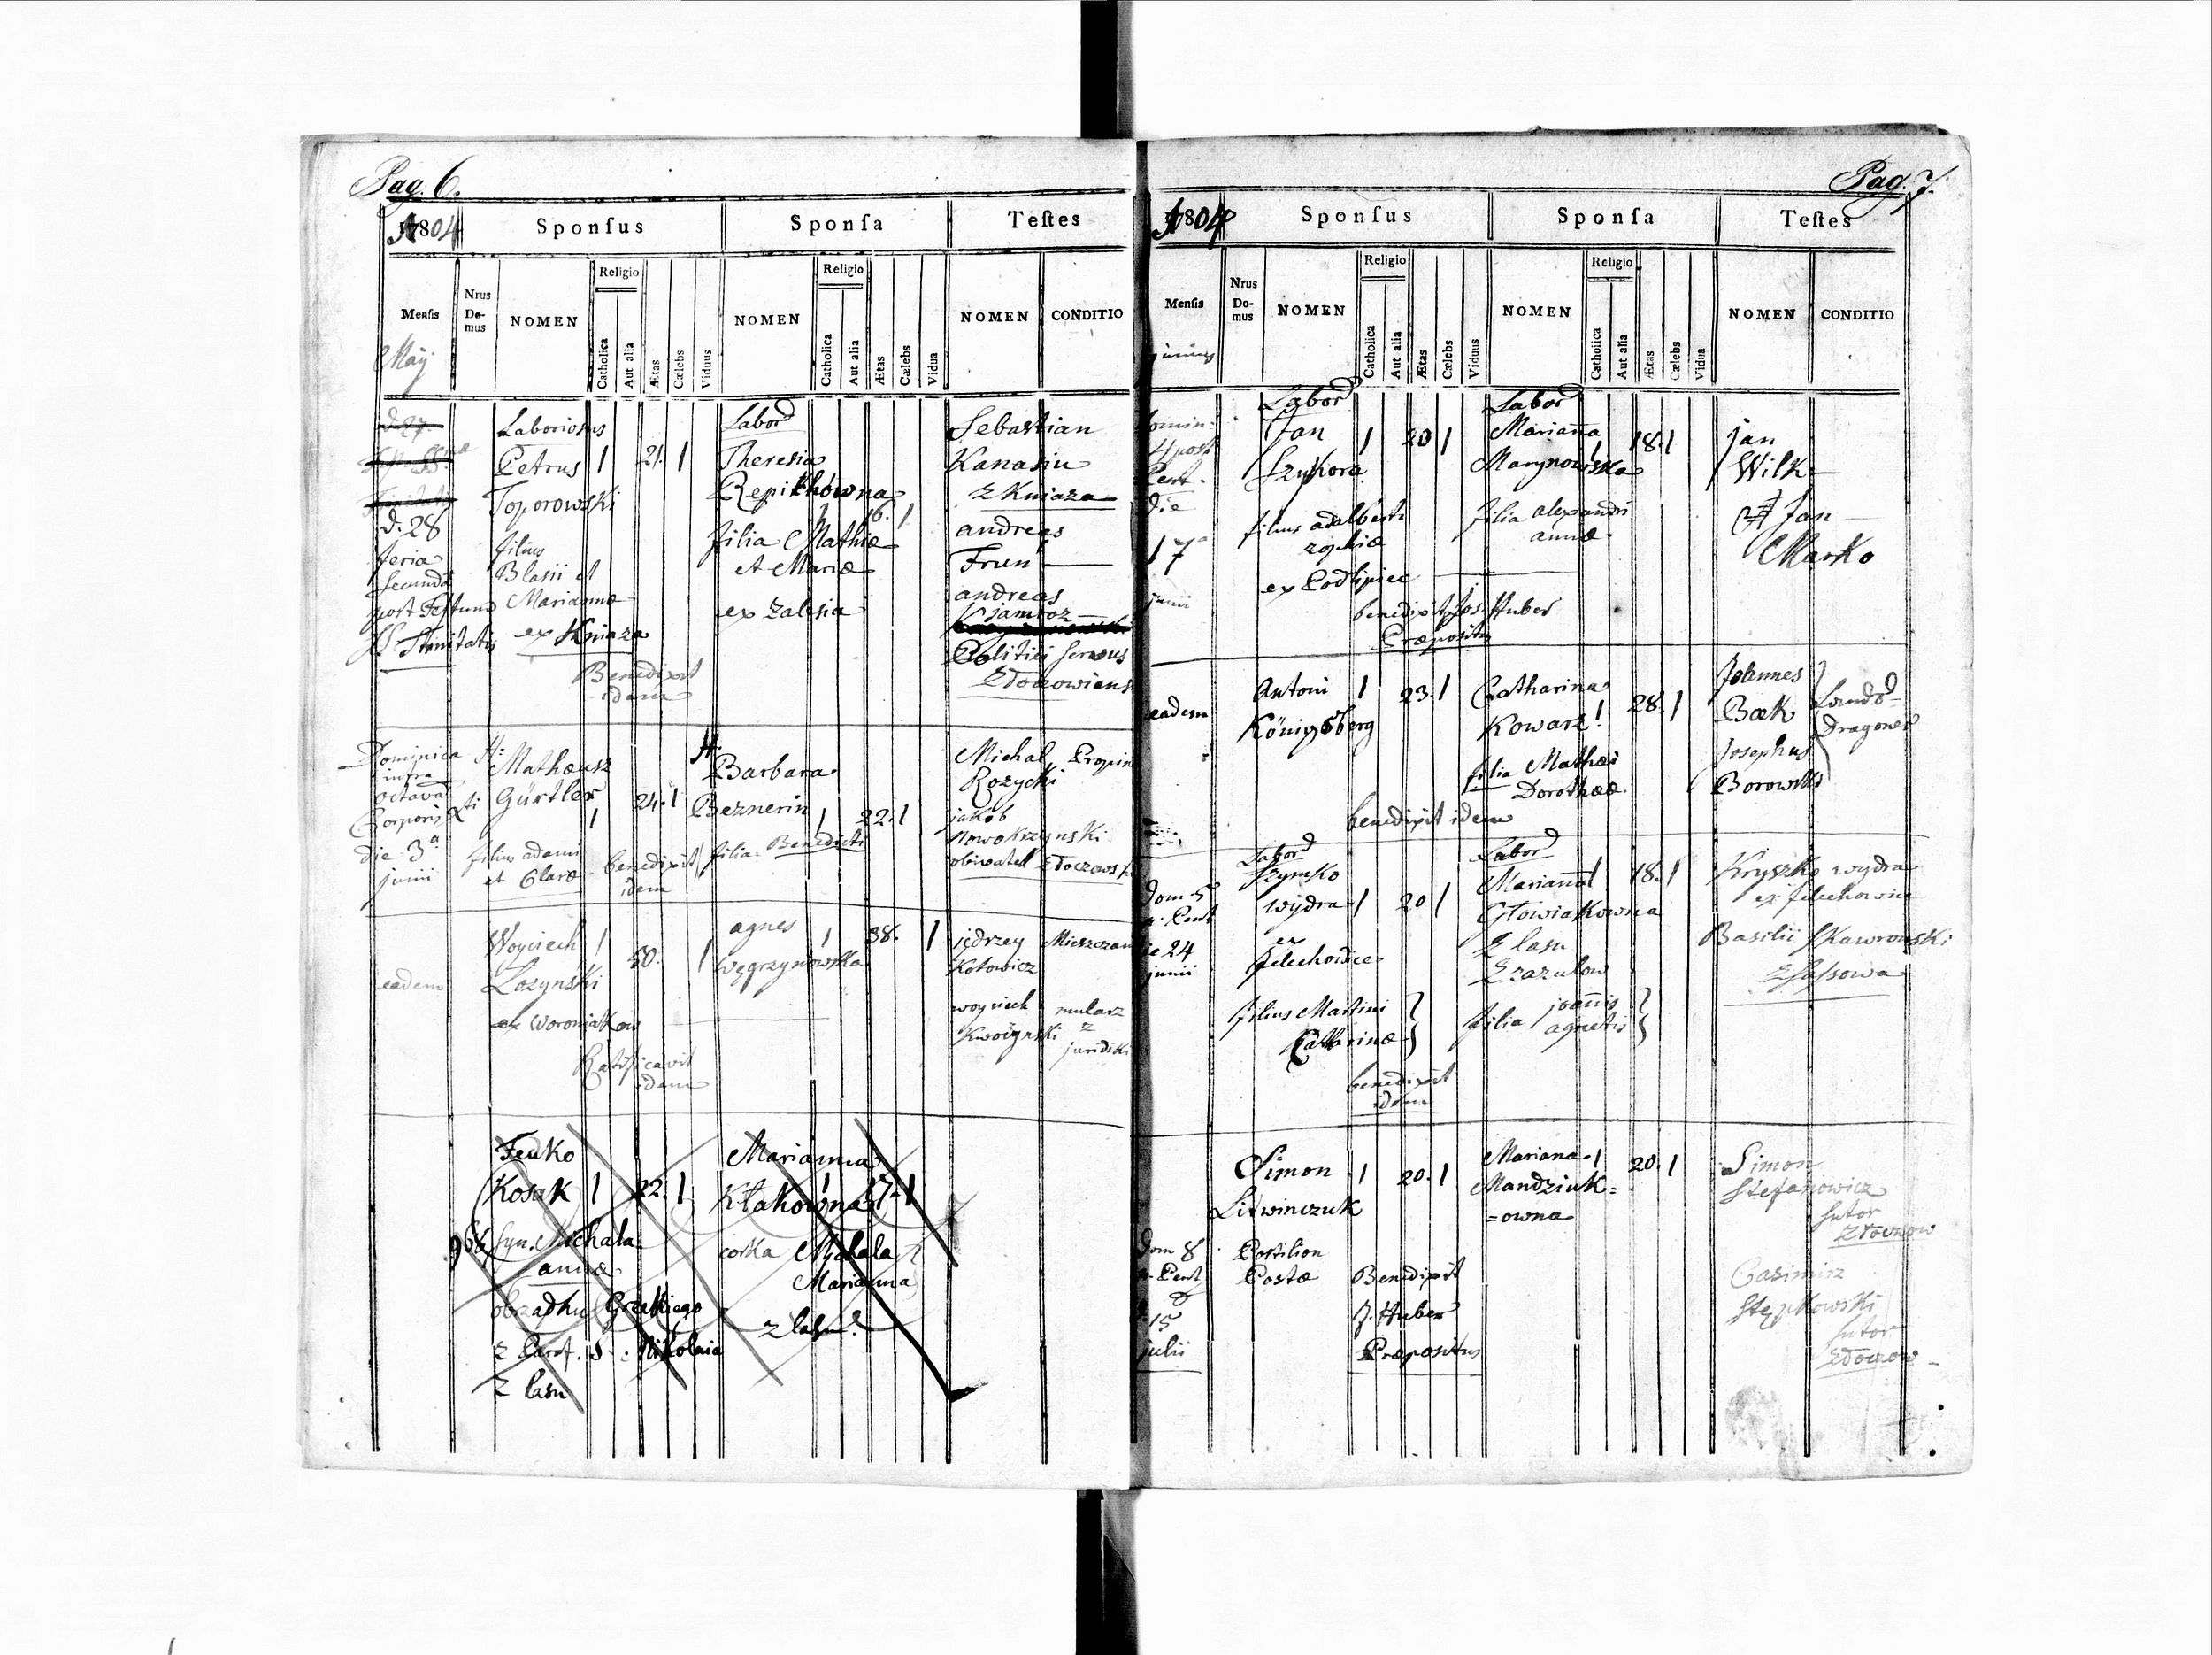 Pag. 6.
1804
Sponsus
Sponsa
Testes
Mensis
Nrus Do-mus
NOMEN
Religio
Catholica
Aut alia
Ætas
Cælebs
Viduus
NOMEN
Religio
Catholica
Aut alia
Ætas
Cælebs
Vidua
NOMEN
CONDITIO
May
d. 28
feria
secunda
post Festum
SS Trinitatis
Laboriosus
Petrus 1 21. 1
Toporowski
filius
Blasii et
Marianna
ex Kniaza
Benedixit
idem
Labor
Theresia
Repikhowna
16. 1
filia Mathiæ
et Mariæ
ex Zalesia
Sebastian
Kanasiu
z Kniaza
andreas
Frun
andreas
jamroz
Politiei servus
Dominica
infra
octava
Corporis Xti
die 3a
junii
H:
Mathæusz
Gürtler
1 24. 1
filius adami
et Claræ
benedixit
idem
H:
Barbara
Beznerin 1 22. 1
filia Benedicti
Michal Propin
Rozycki
jakob
Nowokrzynski
obiwatel
eadem
Woyciech 1
50. 1
Lozynski
ex Woroniakow
Ratificavit
idem
agnes 1 38. 1
Węgrzynowska
jędrzey Mieszczan
Kotowicz
woyciech mularz
z
juridiki
Feuko
Kosak 1 22. 1
966 syn. Michala
annæ
obrządku Greckiego
z Paraf. S. Nikolaia
z lasu
Marianna
Kłakowna 1 17. 1
corka Michala
Marianna
z lasu
Pag. 7.
1804
Sponsus
Sponsa
Testes
Mensis
Nrus Do-mus
NOMEN
Religio
Catholica
Aut alia
Ætas
Cælebs
Viduus
NOMEN
Religio
Catholica
Aut alia
Ætas
Cælebs
Vidua
NOMEN
CONDITIO
junius
Domin.
4 post
Pent.
die
17
junii
Labor
Jan 1 20 1
Szykora
filius adalberti
zophiæ
ex Podlipiec
benedixit Jos. Huber
Præpositus
Labor
Marianna
1 18. 1
Marynowska
filia alexandri
annæ
Jan
Wilk
Jan
Marko
eadem
Antoni 1 23. 1
Königsberg
benedixit idem
Catharina
28. 1
Kowarz!
filia Mathæi
Dorotheæ
Johannes
Bæk
Dragoner
Josephus
Borowski
Dom. 5
p. Pent
die 24
junii
Labor
Szymko
wydra 1 20 1
ex
Jelechowice
filius Martini
Catharinæ
benedixit
idem
Labor
Marianna 1 18. 1
Głowiakowna
z lasu
z zazulow
filia joannis
agnetis
Kryszko wydra
ex Jelechowice
Basilii Skawronski
z Sassowa
Dom 8
p. Pent
d
15
julii
Simon 1 20. 1
Litwinczuk
Postilion
Postæ
Benedixit
J. Huber
Præpositus
Mariana 1 20. 1
Mandziuk=
=owna
Simon
Stefanowicz
sutor
Casimirz
Stępkowski
sutor